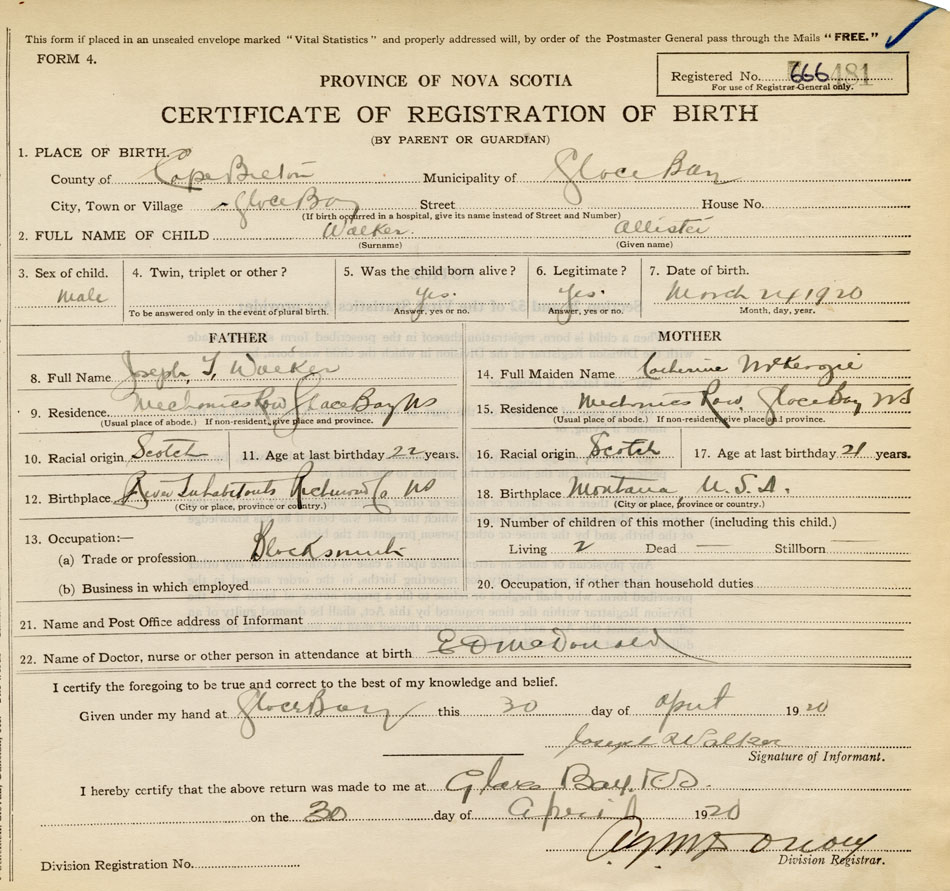 This form if placed in an unsealed envelope marked "Vital Statistics" and properly addressed will, by order of the Postmaster General pass through the Mails "FREE."
FORM 4.
Registered No. 666 481
For use of Registrar-General only.
PROVINCE OF NOVA SCOTIA
CERTIFICATE OF REGISTRATION OF BIRTH
(BY PARENT OR GUARDIAN)
1. PLACE OF BIRTH.
County of Cape Breton Municipality of Glace Bay
City, Town or Village Glace Bay Street House No.
(If birth occurred in a hospital, give its name instead of Street and Number)
2. FULL NAME OF CHILD Walker Allister
(Surname) (Given name)
3. Sex of child. 4. Twin, triplet or other? 5. Was the child born alive? 6. Legitimate? 7. Date of birth.
Male Yes. Yes. March 24 1920
To be answered only in the event of plural birth. Answer, yes or no. Answer, yes or no. Month, day, year.
FATHER MOTHER
8. Full Name Joseph, Walker 14. Full Maiden Name Catherine McKenzie
9. Residence Mechanics Row Glace Bay NS 15. Residence Mechanics Row, Glace Bay NS
(Usual place of abode.) If non-resident, give place and province. (Usual place of abode.) If non-resident, give place and province.
10. Racial origin Scotch 11. Age at last birthday 22 years. 16. Racial origin Scotch 17. Age at last birthday 21 years.
12. Birthplace River Inhabitants Richmond Co. NS 18. Birthplace Montana, U.S.A.
(City or place, province or country.) (City or place, province or country.)
13. Occupation:— 19. Number of children of this mother (including this child.)
(a) Trade or profession Blacksmith Living 2 Dead — Stillborn —
(b) Business in which employed 20. Occupation, if other than household duties
21. Name and Post Office address of Informant
22. Name of Doctor, nurse or other person in attendance at birth E D McDonald
I certify the foregoing to be true and correct to the best of my knowledge and belief.
Given under my hand at Glace Bay this 30 day of April 1920
Joseph Walker
Signature of Informant.
I hereby certify that the above return was made to me at Glace Bay.
on the 30 day of April 1920
Division Registrar.
Division Registration No.